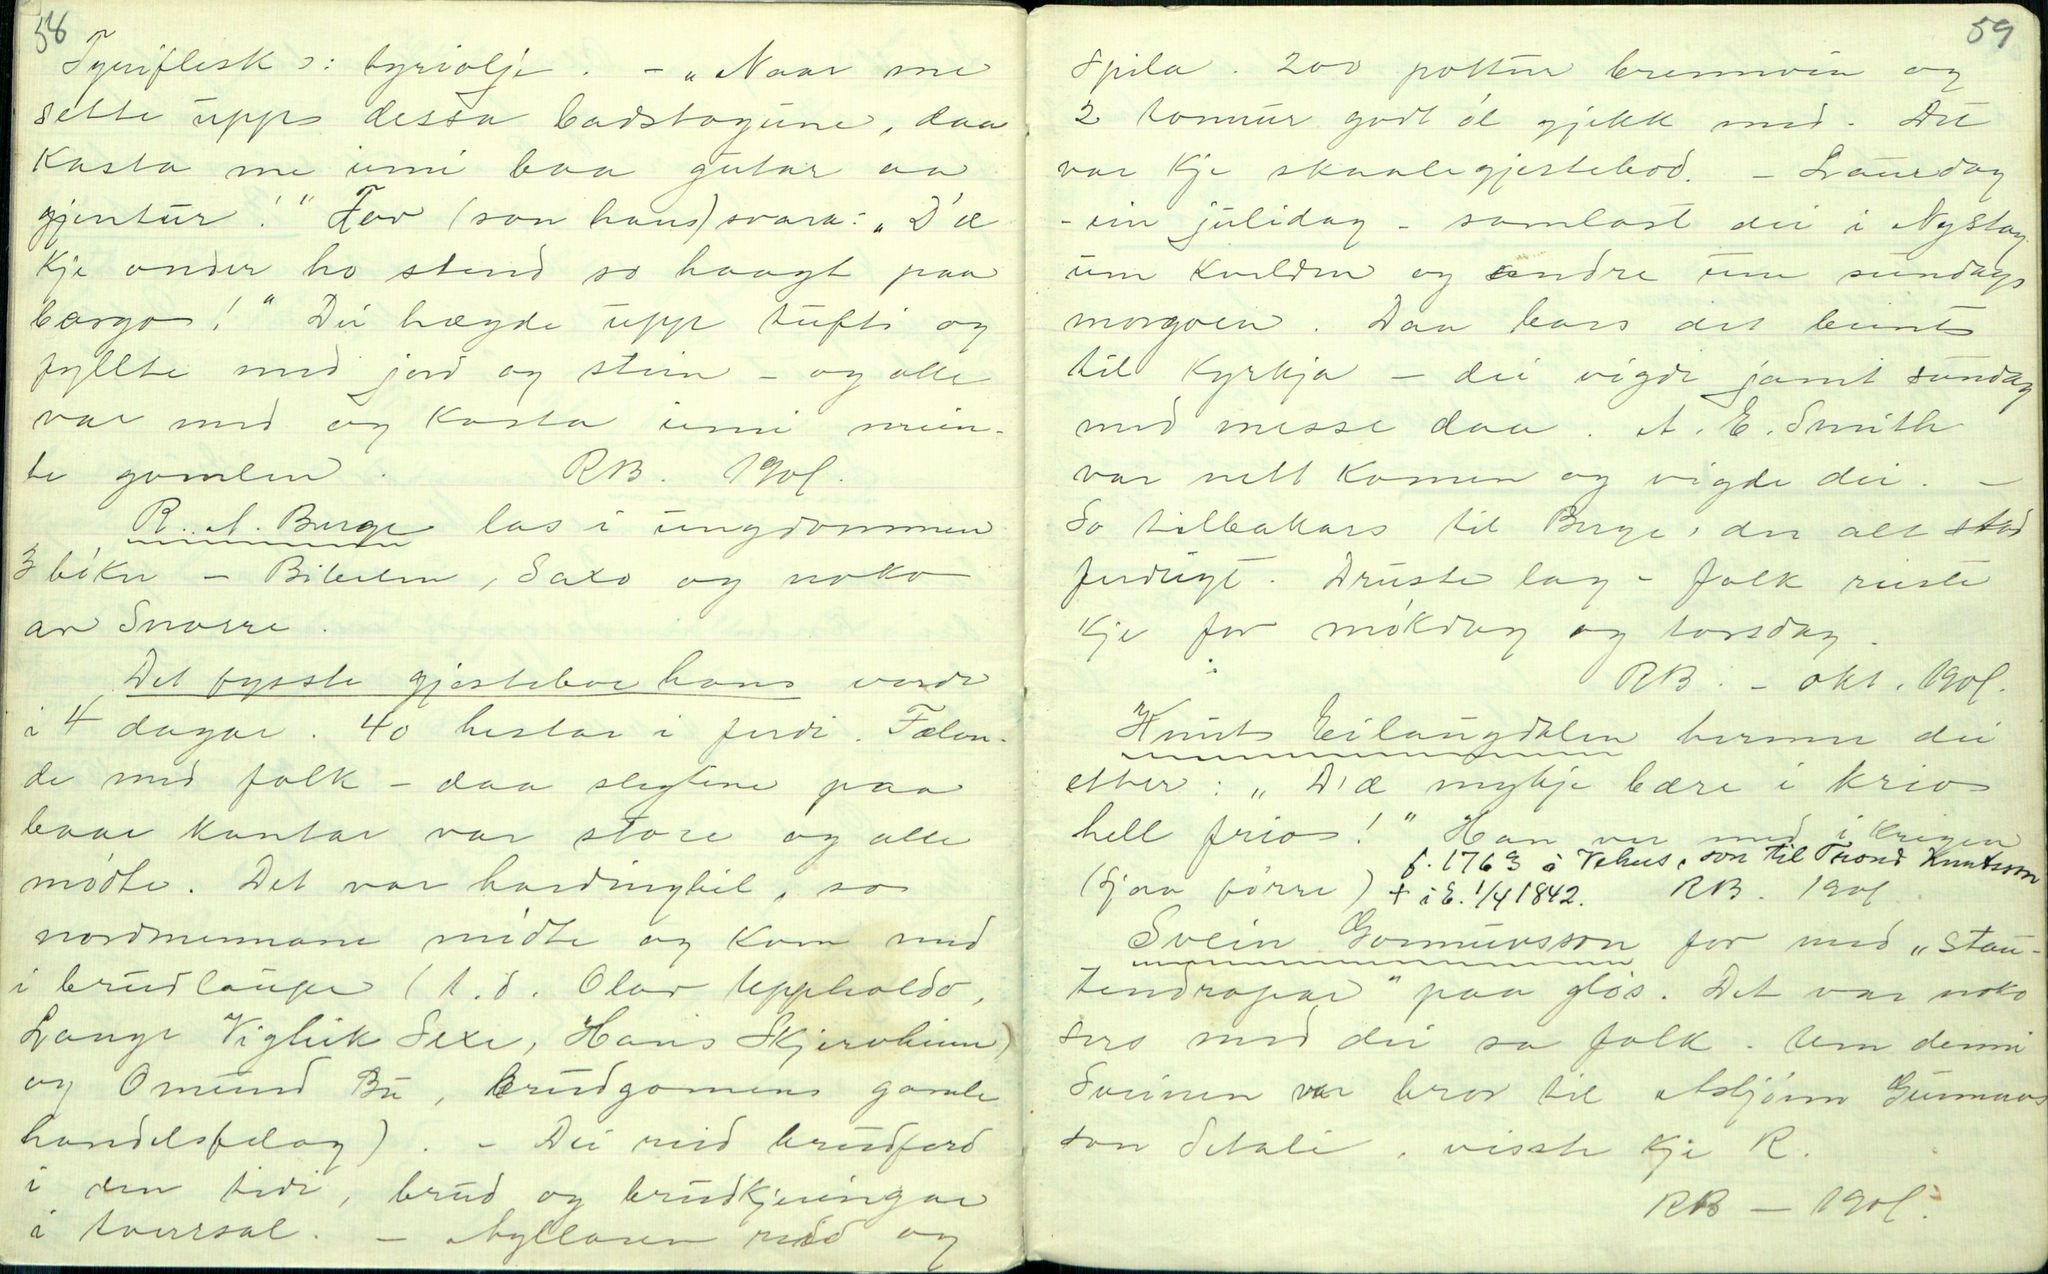 58
Tyriflesk ɔ: tyriolje. - „Naar me
sette upp dessa badstogune, daa
kasta me inni baa gutar aa
gjentur!" Tov (son hans) svara: „D'æ
kje onder ho stend so haagt paa
bergo!" Dei hægde upp tufti og
fyllte med jord og stein - og alle
var med og kasta inni mein-
te gamlen. RB. 1901.
R. A. Berge las i ungdommen
3 bøker - Bibelen, Saxo og noko
av Snorre.
Det fysste gjesteboe hans vorde
i 4 dagar. 40 hestar i ferdi. Fælan-
de med folk - daa slegtene paa
baae kantar var store og alle
mødte. Det var hardingbil, so
nordmennane mødte og kom med
i brudlaupe (t.d. Olav Uppheldo,
Lange Vigleik Sexe, Hans Skjervheim)
og Omund Bu, brudgomens gamle
handelsfelag). - Dei reid brudferd
i den tidi, brud og brudkjeringar
i tversal. - Nyllaren reid og
59
spila. 200 pottur brennvin og
2 tonnur godt øl gjekk med. Det
var kje skaalegjestebod. - Laurdag
- ein julidag - samlast dei i Nystog
um kvelden og andre um sundags
morgoen. Daa bars det beint
til kyrkja - dei vigde jamt sundag
med messe daa. A. E. Smith
var nett komen og vigde dei. -
So tilbakars til Berge, der alt stod
ferdugt. Druste lag - folk reiste
kje før mòkdag og torsdag.
RB. - okt. 1901.
Knut Eilaugdalen herme dei
etter: „D'æ mykje bære i krio
hell frio!" Han var med i krigen
f. 1763 å Vehus, son til Trond Knutsson
(sjaa førre) + i E. 1/4 1842. RB. 1901.
Svein Gunnuvsson for med „stau-
tendrapar" paa gløs. Det var noko
sers med dei sa folk. Um denni
Sveinen var bror til Asbjønn Gunnars
son Setali, visste kje R.
RB - 1901.